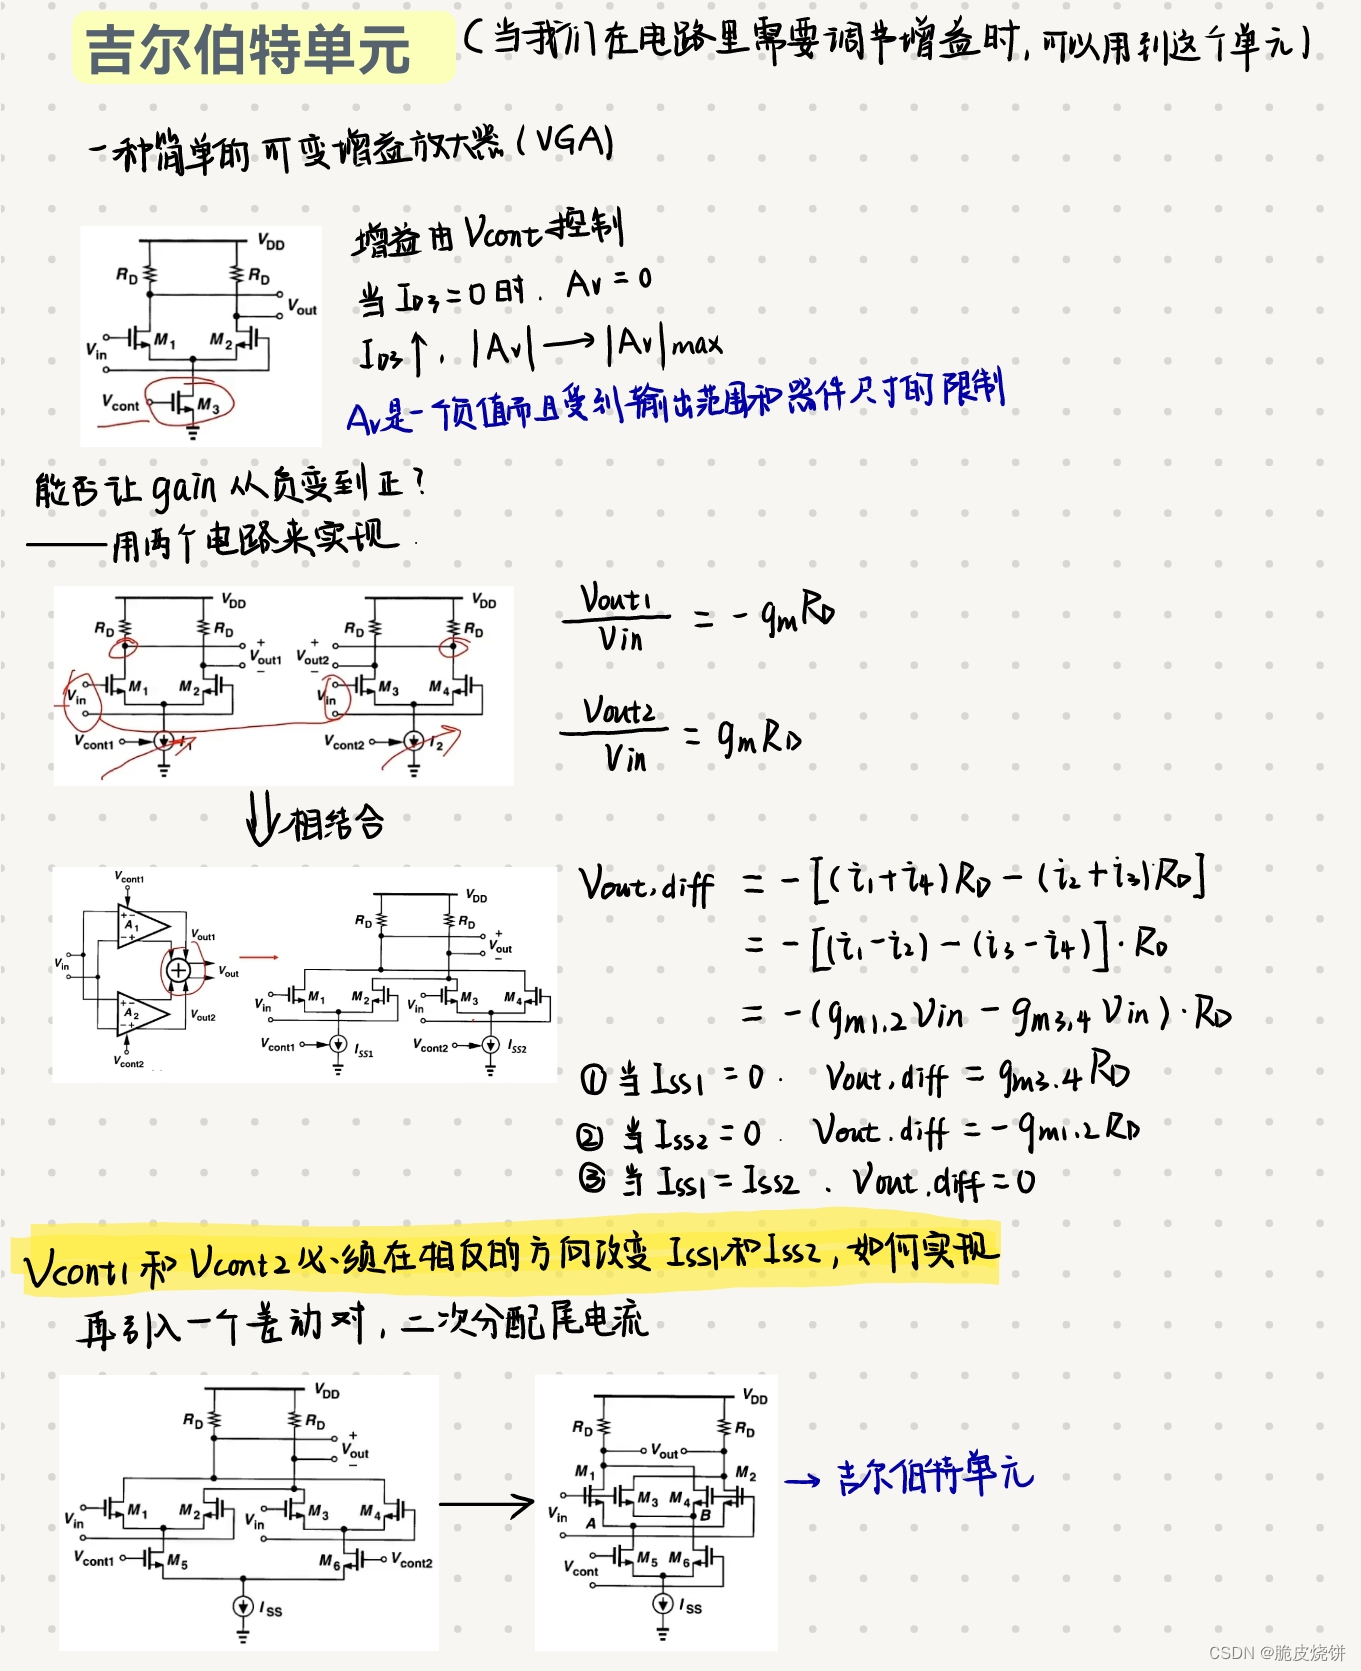 吉尔伯特单元 (当我们在电路里需要调节增益时,可以用到这个单元)
一种简单的可变增益放大器(VGA)
VDD
RD RD
Vout
Vin M1 M2
Vcont M3
增益由Vcont控制
当ID3=0时. Av=0
ID3↑, |Av|→|Av|max
Av是一个负值而且受到输出范围和器件尺寸的限制
能否让gain从负变到正?
——用两个电路来实现.
VDD VDD
RD RD RD RD
+ +
Vout1 Vout2
− −
Vin M1 M2 Vin M3 M4
Vcont1 I1 Vcont2 I2
Vout1/Vin = -gmRD
Vout2/Vin = gmRD
⇓相结合
Vcont1
A1
Vout1
Vin Vout
A2
Vout2
Vcont2
VDD
RD RD
+
Vout
−
Vin M1 M2 Vin M3 M4
Vcont1 ISS1 Vcont2 ISS2
Vout,diff = -[(i1+i4)RD-(i2+i3)RD]
= -[(i1-i2)-(i3-i4)]·RD
= -(gm1,2Vin-gm3,4Vin)·RD
①当Iss1=0. Vout,diff=gm3.4RD
②当Iss2=0. Vout.diff=-gm1.2RD
③当Iss1=Iss2. Vout.diff=0
Vcont1和Vcont2必须在相反的方向改变Iss1和Iss2,如何实现
再引入一个差动对,二次分配尾电流
VDD
RD RD
+
Vout
−
Vin M1 M2 Vin M3 M4
Vcont1 M5 M6 Vcont2
ISS
VDD
RD RD
Vout
M1 M2
M3 M4
Vin A B
M5 M6
Vcont
ISS
→吉尔伯特单元
CSDN @脆皮烧饼